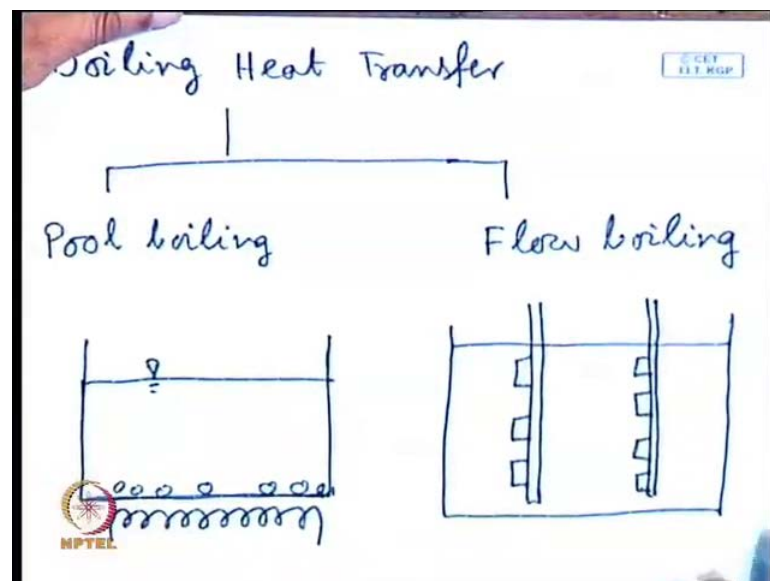 Boiling Heat Transfer
© CET
IIT KGP
Pool boiling
Flow boiling
NPTEL